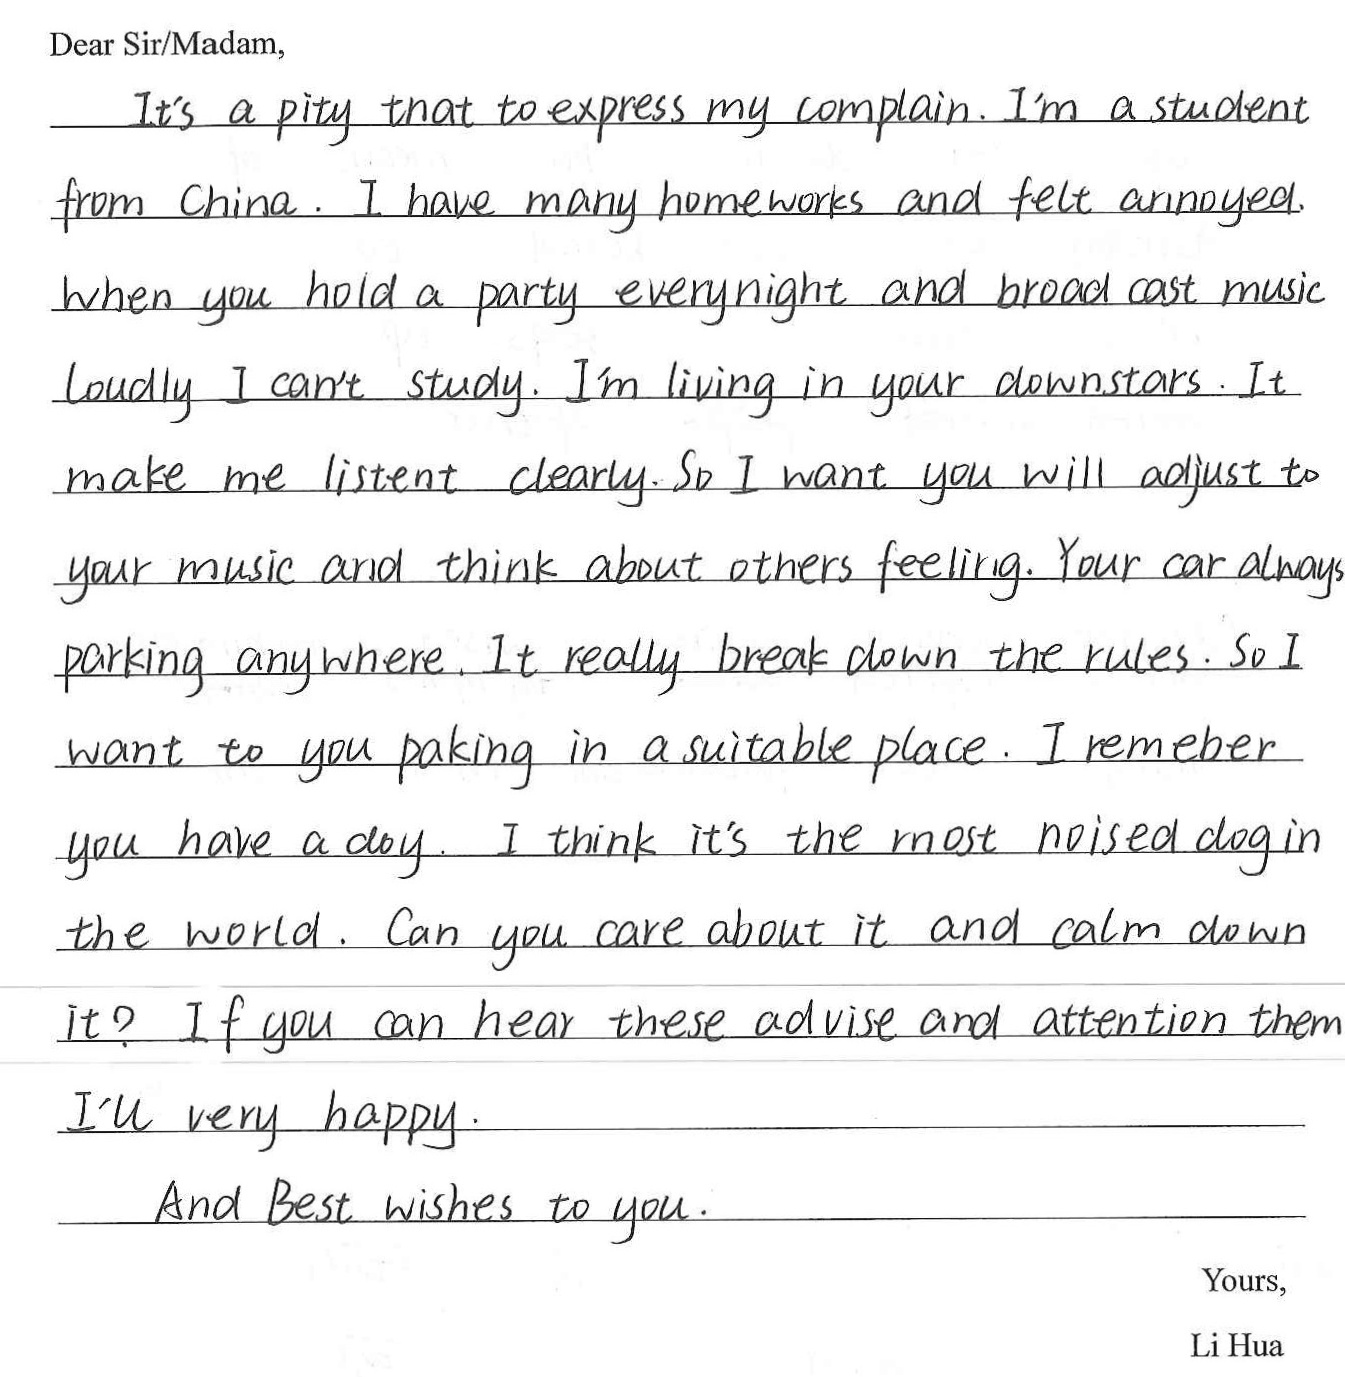 Dear Sir/Madam,
It's a pity that to express my complain. I'm a student
from China. I have many homeworks and felt annoyed.
When you hold a party everynight and broad cast music
Loudly I can't study. I'm living in your downstars. It
make me listent clearly. So I want you will adjust to
your music and think about others feeling. Your car always
parking anywhere. It really break down the rules. So I
want to you paking in a suitable place. I remeber
you have a doy. I think it's the most noised dog in
the world. Can you care about it and calm down
it? If you can hear these advise and attention them
I'll very happy.
And Best wishes to you.
Yours,
Li Hua